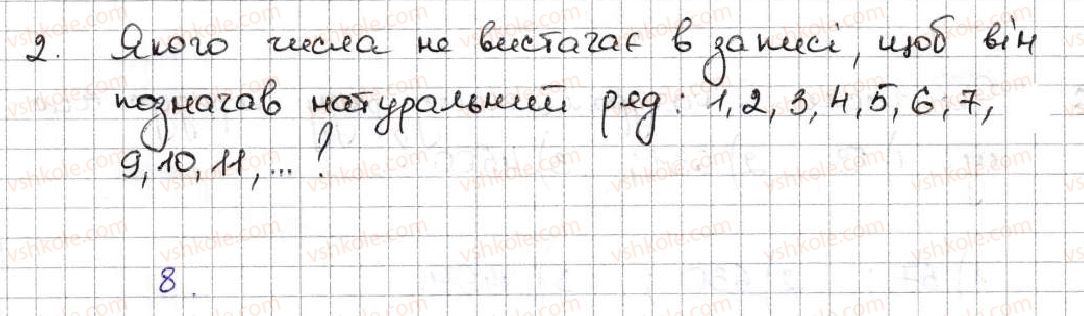 2. Якого числа не вистачає в записі, щоб він
позначав натуральний ряд: 1, 2, 3, 4, 5, 6, 7,
9, 10, 11, ... ?
8.